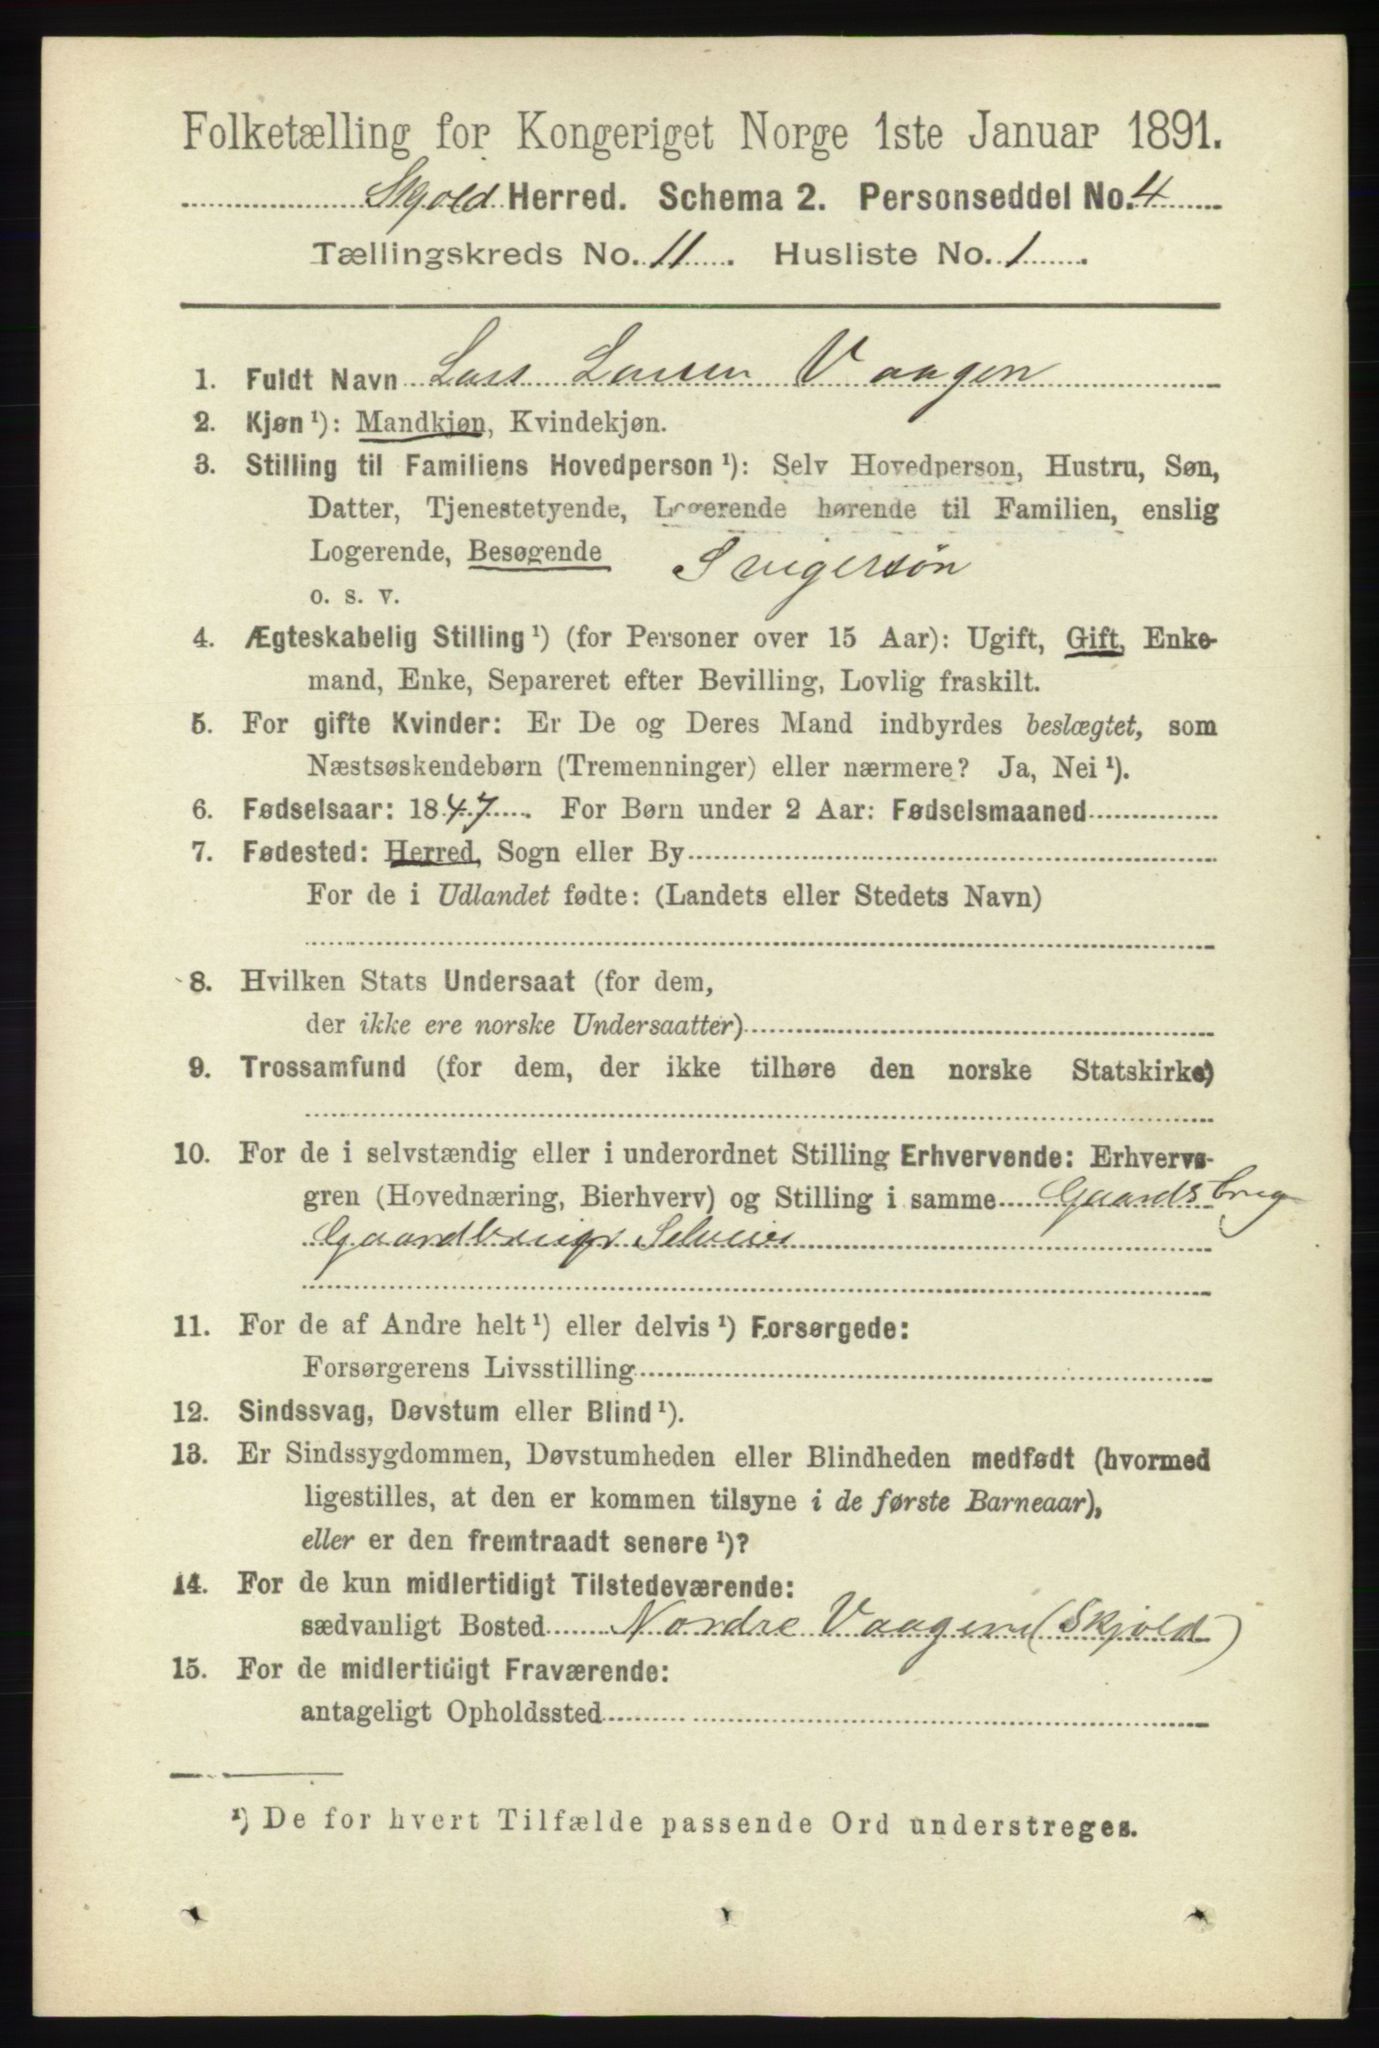 Folketælling for Kongeriget Norge 1ste Januar 1891.
Skjold Herred. Schema 2. Personseddel No. 4
Tællingskreds No. 11. Husliste No. 1.
1. Fuldt Navn Lars Larsen Vaagen
2. Kjøn ¹): Mandkjøn, Kvindekjøn.
3. Stilling til Familiens Hovedperson ¹): Selv Hovedperson, Hustru, Søn,
Datter, Tjenestetyende, Logerende hørende til Familien, enslig
Logerende, Besøgende Svigersøn
o. s. v.
4. Ægteskabelig Stilling ¹) (for Personer over 15 Aar): Ugift, Gift, Enke-
mand, Enke, Separeret efter Bevilling, Lovlig fraskilt.
5. For gifte Kvinder: Er De og Deres Mand indbyrdes beslægtet, som
Næstsøskendebørn (Tremenninger) eller nærmere? Ja, Nei ¹).
6. Fødselsaar: 1847. For Børn under 2 Aar: Fødselsmaaned
7. Fødested: Herred, Sogn eller By
For de i Udlandet fødte: (Landets eller Stedets Navn)
8. Hvilken Stats Undersaat (for dem,
der ikke ere norske Undersaatter)
9. Trossamfund (for dem, der ikke tilhøre den norske Statskirke)
10. For de i selvstændig eller i underordnet Stilling Erhvervende: Erhvervs-
gren (Hovednæring, Bierhverv) og Stilling i samme Gaardsbrug
Gaardbruger Selveier
11. For de af Andre helt ¹) eller delvis ¹) Forsørgede:
Forsørgerens Livsstilling
12. Sindssvag, Døvstum eller Blind ¹).
13. Er Sindssygdommen, Døvstumheden eller Blindheden medfødt (hvormed
ligestilles, at den er kommen tilsyne i de første Barneaar),
eller er den fremtraadt senere ¹)?
14. For de kun midlertidigt Tilstedeværende:
sædvanligt Bosted Nordre Vaagen (Skjold)
15. For de midlertidigt Fraværende:
antageligt Opholdssted
¹) De for hvert Tilfælde passende Ord understreges.